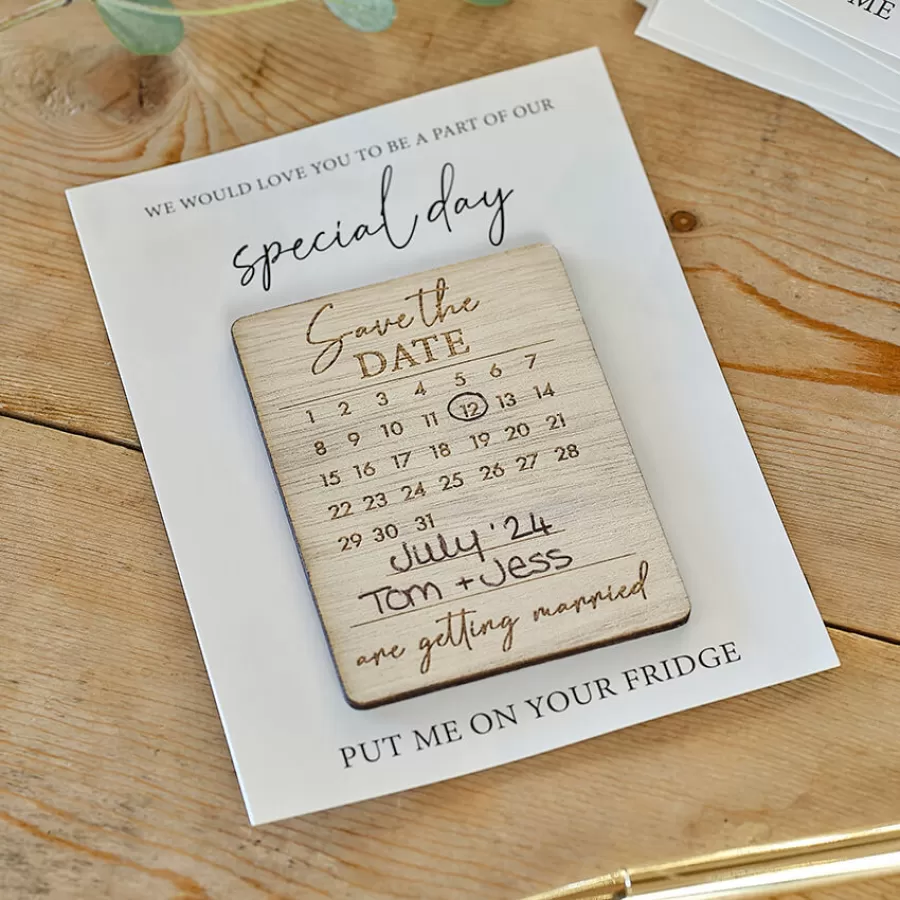 ME
WE WOULD LOVE YOU TO BE A PART OF OUR
special day
Save the
DATE
1 2 3 4 5 6 7
8 9 10 11 12 13 14
15 16 17 18 19 20 21
22 23 24 25 26 27 28
29 30 31
July '24
Tom + Jess
are getting married
PUT ME ON YOUR FRIDGE